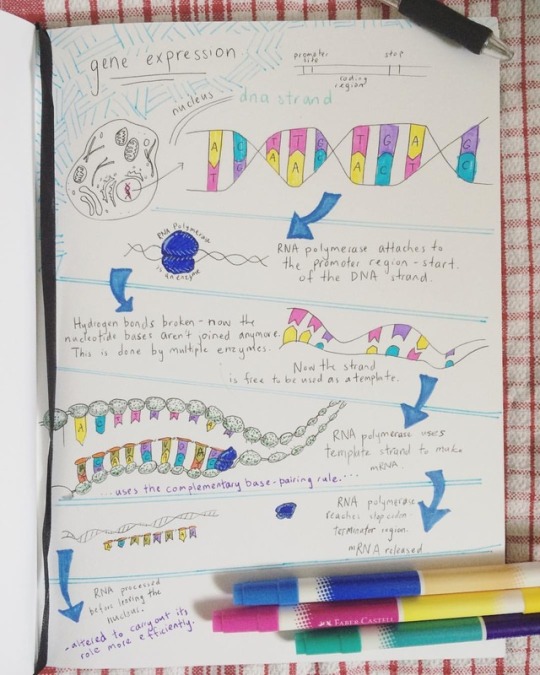 gene expression
promoter site
stop
coding region
nucleus
dna strand
A C T T G T G A G
T G A A C A C T C
RNA Polymerase
is an enzyme
RNA polymerase attaches to
the promoter region - start
of the DNA strand.
Hydrogen bonds broken - now the
nucleotide bases aren't joined anymore.
This is done by multiple enzymes.
Now the strand
is free to be used as a template.
A C
RNA polymerase uses
template strand to make
mRNA.
...uses the complementary base-pairing rule...
RNA polymerase
reaches stop codon -
terminator region.
mRNA released
RNA processed
before leaving the
nucleus.
-altered to carry out its
role more efficiently.
FABER-CASTELL